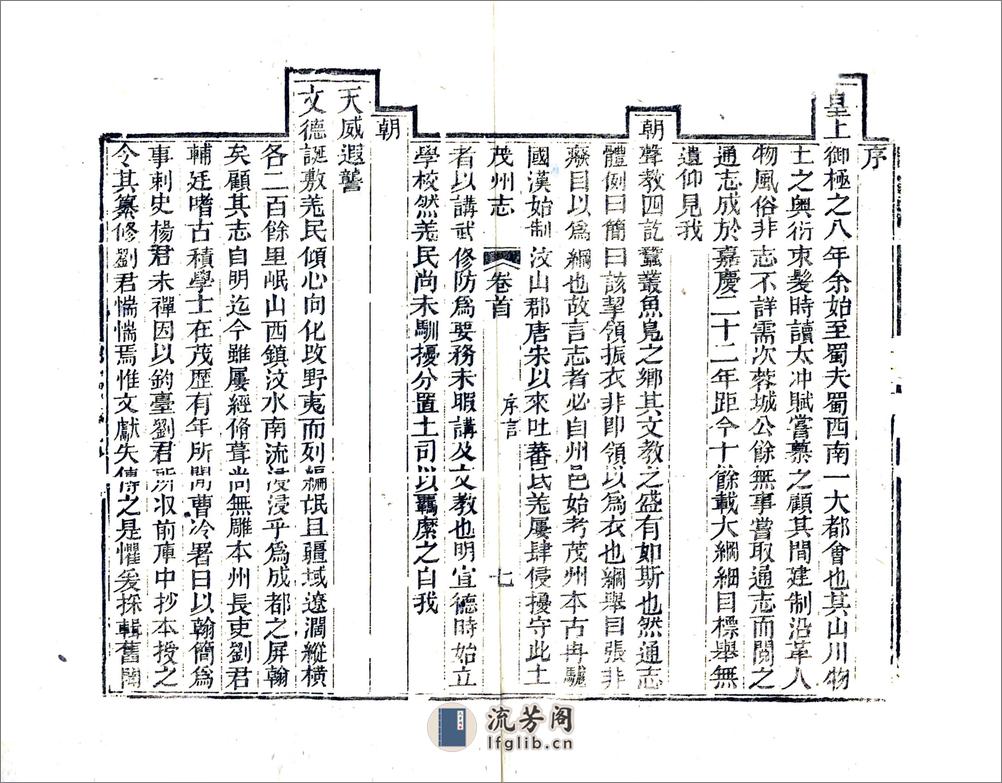 序
皇上御極之八年余始至蜀夫蜀西南一大都會也其山川物
土之奧衍束髮時讀太冲賦嘗慕之顧其間建制沿革人
物風俗非志不詳需次蓉城公餘無事嘗取通志而閱之
通志成於嘉慶二十二年距今十餘載大綱細目標舉無
遺仰見我
朝聲教四訖蠶叢魚鳧之鄉其文教之盛有如斯也然通志
體例曰簡曰該挈領振衣非即領以爲衣也綱舉目張非
廢目以爲綱也故言志者必自州邑始考茂州本古冉駹
國漢始制汶山郡唐宋以來吐蕃氐羌屢肆侵擾守此土
茂州志 卷首 序言 七
者以講武修防爲要務未暇講及文教也明宣德時始立
學校然羌民尚未馴擾分置土司以羈縻之自我
朝
天威遐讋
文德誕敷羌民傾心向化改野夷而列編氓且疆域遼濶縱橫
各二百餘里岷山西鎮汶水南流浸浸乎爲成都之屏翰
矣顧其志自明迄今雖屢經脩葺尚無雕本州長吏劉君
輔廷嗜古積學士在茂歷有年所閒曹冷署日以翰簡爲
事刺史楊君未禪因以鈞臺劉君所收前庫中抄本授之
令其纂修劉君惴惴焉惟文獻失傳之是懼爰採輯舊聞
流芳阁
lfglib.cn